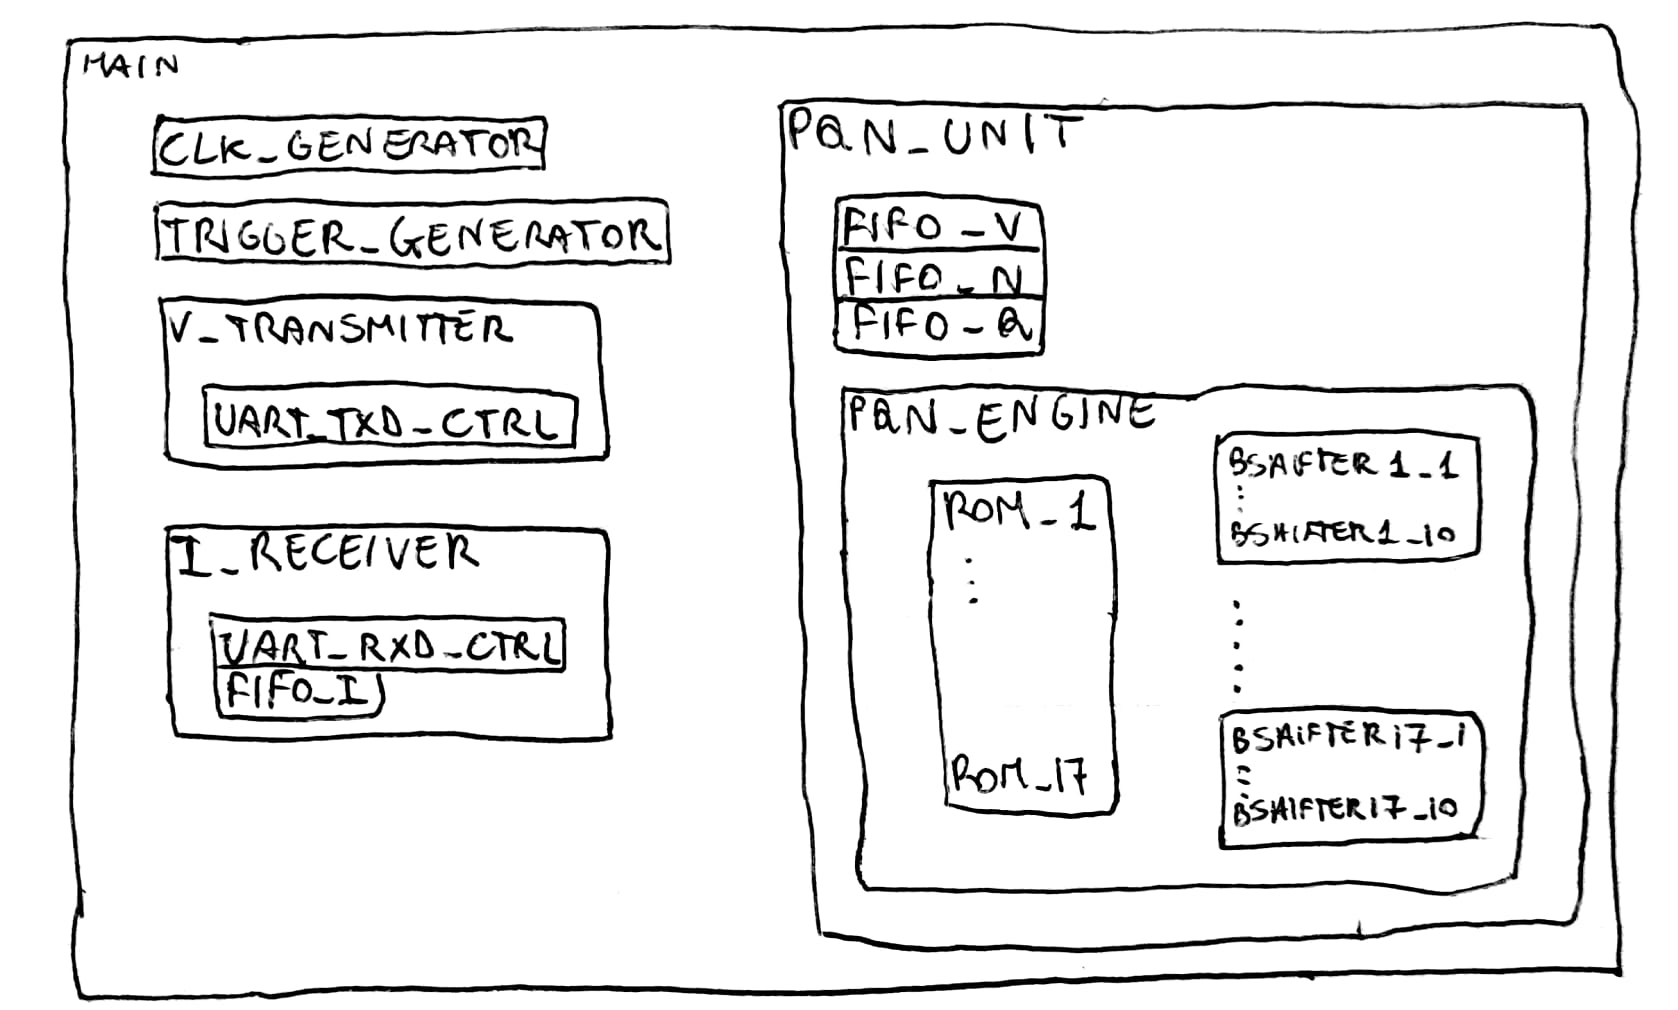 MAIN
CLK_GENERATOR
TRIGGER_GENERATOR
V_TRANSMITTER
UART_TXD_CTRL
I_RECEIVER
UART_RXD_CTRL
FIFO_I
PQN_UNIT
FIFO_V
FIFO_N
FIFO_Q
PQN_ENGINE
ROM_1
ROM_17
BSHIFTER1_1
BSHIFTER1_10
BSHIFTER17_1
BSHIFTER17_10